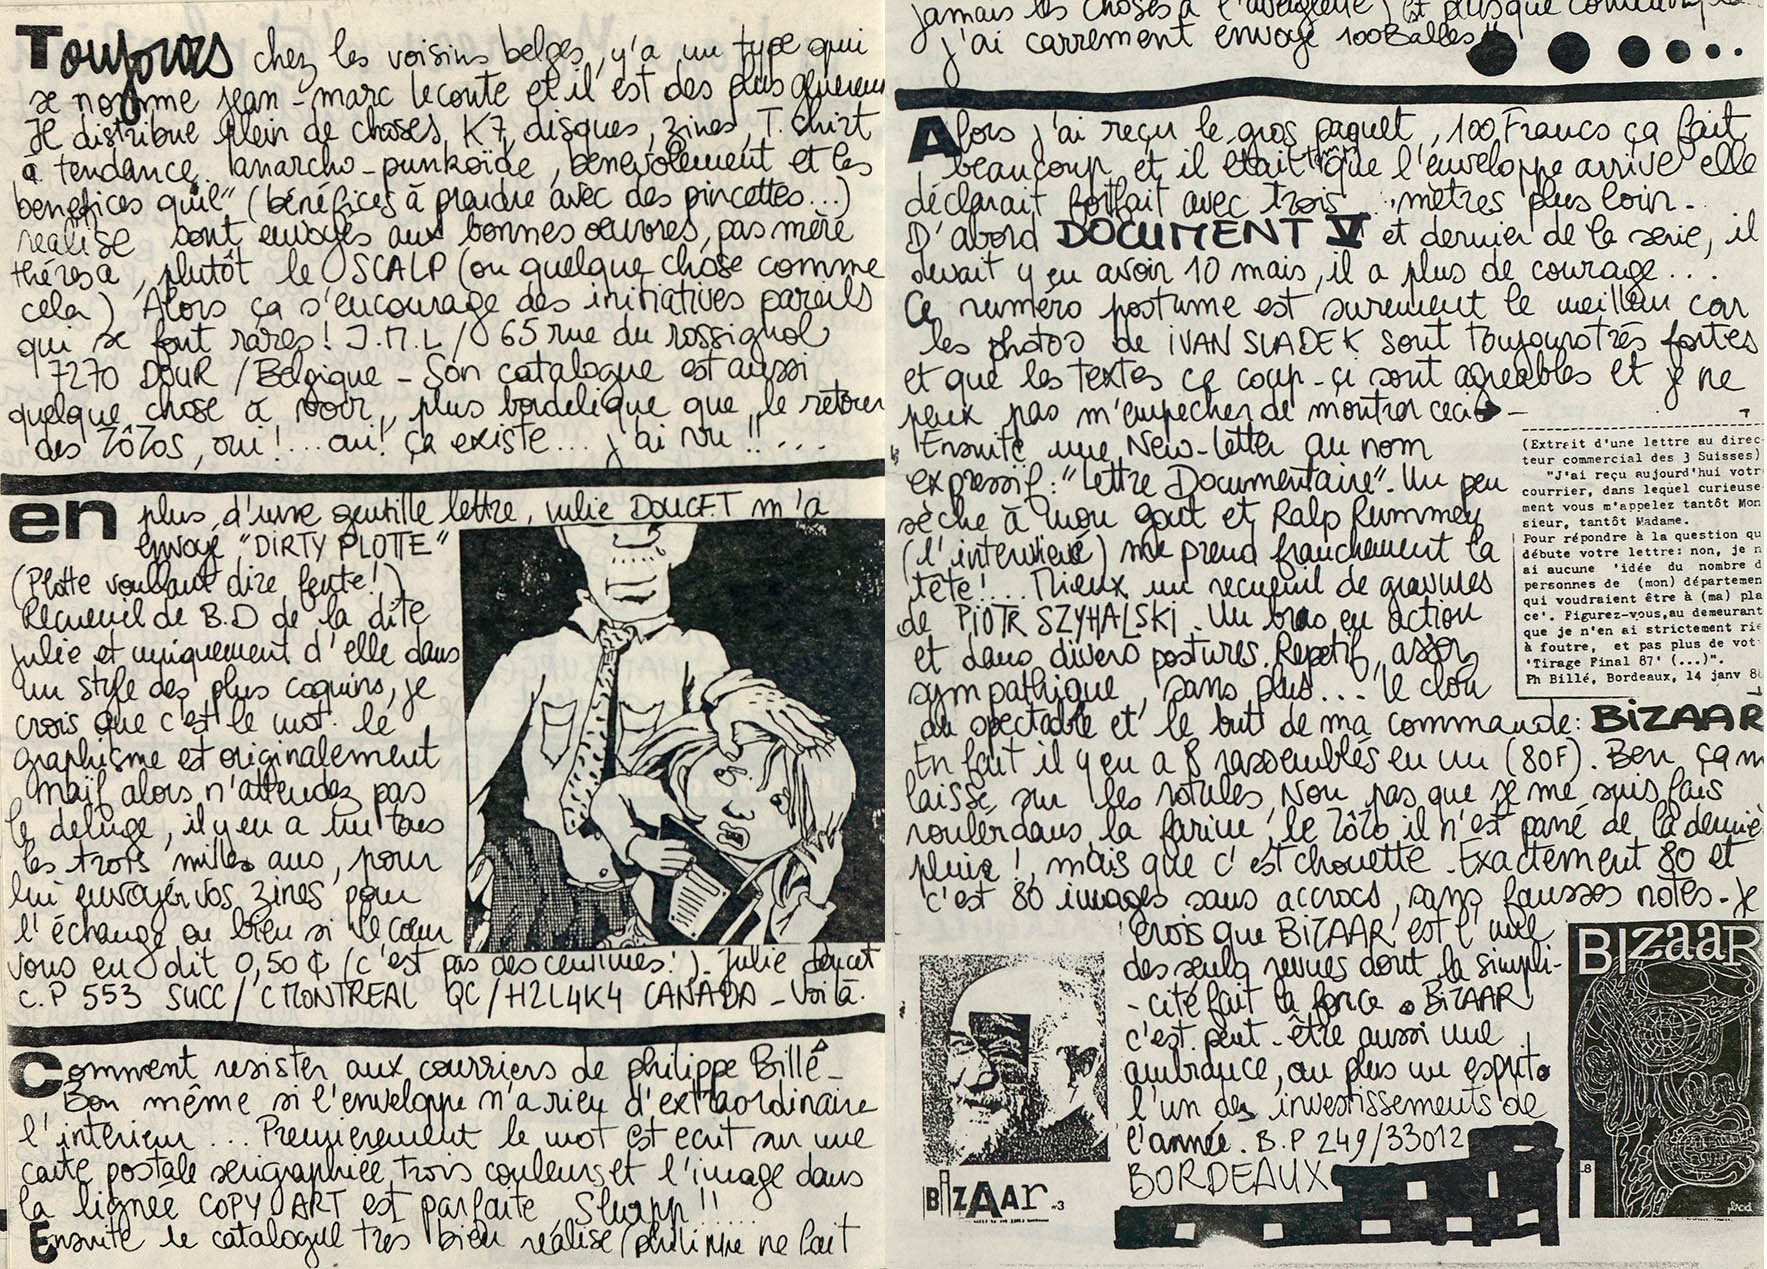 Toujours chez les voisins belges, y'a un type qui
se nomme jean-marc leconte et il est des plus généreux
Il distribue plein de choses, K7, disques, zines, T. Shirt
à tendance anarcho-punkoïde, bénévolement et les
benefices quil" (bénéfices à prendre avec des pincettes...)
realise sont envoyés aux bonnes oeuvres, pas mère
thérésa, plutôt le SCALP (ou quelque chose comme
cela) Alors ça s'encourage des initiatives pareils
qui se font rares! J.M.L / 65 rue du rossignol
7270 DOUR / Belgique - Son catalogue est aussi
quelque chose à voir, plus bordelique que le retour
des zôzos, oui!... oui! ça existe.... j'ai vu!!....
en plus d'une gentille lettre, julie DOUCET m'a
envoyé "DIRTY PLOTTE"
(Plotte voullant dire fente!)
Recueuil de B.D de la dite
julie et uniquement d'elle dans
un style des plus coquins, je
crois que c'est le mot. le
graphisme est originalement
naïf alors n'attendez pas
le deluge, il y en a un tous
les trois milles ans, pour
lui envoyer vos zines pour
l'échange ou bien si le cœur
vous en dit 0,50 ¢ (c'est pas des centimes!). Julie doucet
C.P 553 SUCC/C MONTREAL QC/H2L4K4 CANADA - Voilà.
Comment resister aux courriers de philippe Billé -
Bon même si l'enveloppe n'a rien d'extraordinaire
l'interieur... Premierement le mot est ecrit sur une
carte postale serigraphiée trois couleurs et l'image dans
la lignée COPY ART est parfaite Slurpp!!......
Ensuite le catalogue très bien réalisé (philippe ne fait
jamais les choses à l'aveuglette) et plus que convaincu
j'ai carrement envoyé 100Balles!!
Alors j'ai reçu le gros paquet, 100 Francs ça fait
beaucoup et il était temps que l'enveloppe arrive elle
déclarait forfait avec trois... mètres plus loin.
D'abord DOCUMENT V et dernier de la serie, il
devait y en avoir 10 mais, il a plus de courage...
Ce numéro postume est surement le meilleur car
les photos de IVAN SLADEK sont toujours très fortes
et que les textes ce coup-çi sont agreables et je ne
peux pas m'empecher de montrer ceci -
(Extrait d'une lettre au direc-
teur commercial des 3 Suisses)
"J'ai reçu aujourd'hui votr
courrier, dans lequel curieuse-
ment vous m'appelez tantôt Mon
sieur, tantôt Madame.
Pour répondre à la question qu
débute votre lettre: non, je n
ai aucune 'idée du nombre d
personnes de (mon) départemen
qui voudraient être à (ma) pla
ce'. Figurez-vous,au demeurant
que je n'en ai strictement rie
à foutre, et pas plus de vot
'Tirage Final 87' (...)".
Ph Billé, Bordeaux, 14 janv 8
Ensuite une New-letter au nom
expressif: "Lettre Documentaire". Un peu
sèche à mon gout et Ralp Rummey
(l'interviewé) me prend franchement la
tête!... Mieux un recueuil de gravures
de PIOTR SZYHALSKI. Un bras en action
et dans divers postures. Repetif, assez
sympathique, sans plus... le clou
du spectacle et le but de ma commande: BiZAAR
En fait il y en a 8 rassemblés en un (80F). Ben ça m
laisse sur les rotules. Non pas que je me suis fais
rouler dans la farine, le zôzo il n'est pas né de la derniè
pluie!, mais que c'est chouette. Exactement 80 et
c'est 80 images sans accrocs, sans fausses notes. Je
crois que BiZAAR est l'une
des seuls revues dont la simpli-
-cité fait la force. BiZAAR
c'est peut-être aussi une
ambiance, ou plus un esprit.
l'un des investissements de
l'année. B.P 249/33012
BORDEAUX
BiZAAr n°3
BIzaaR
8